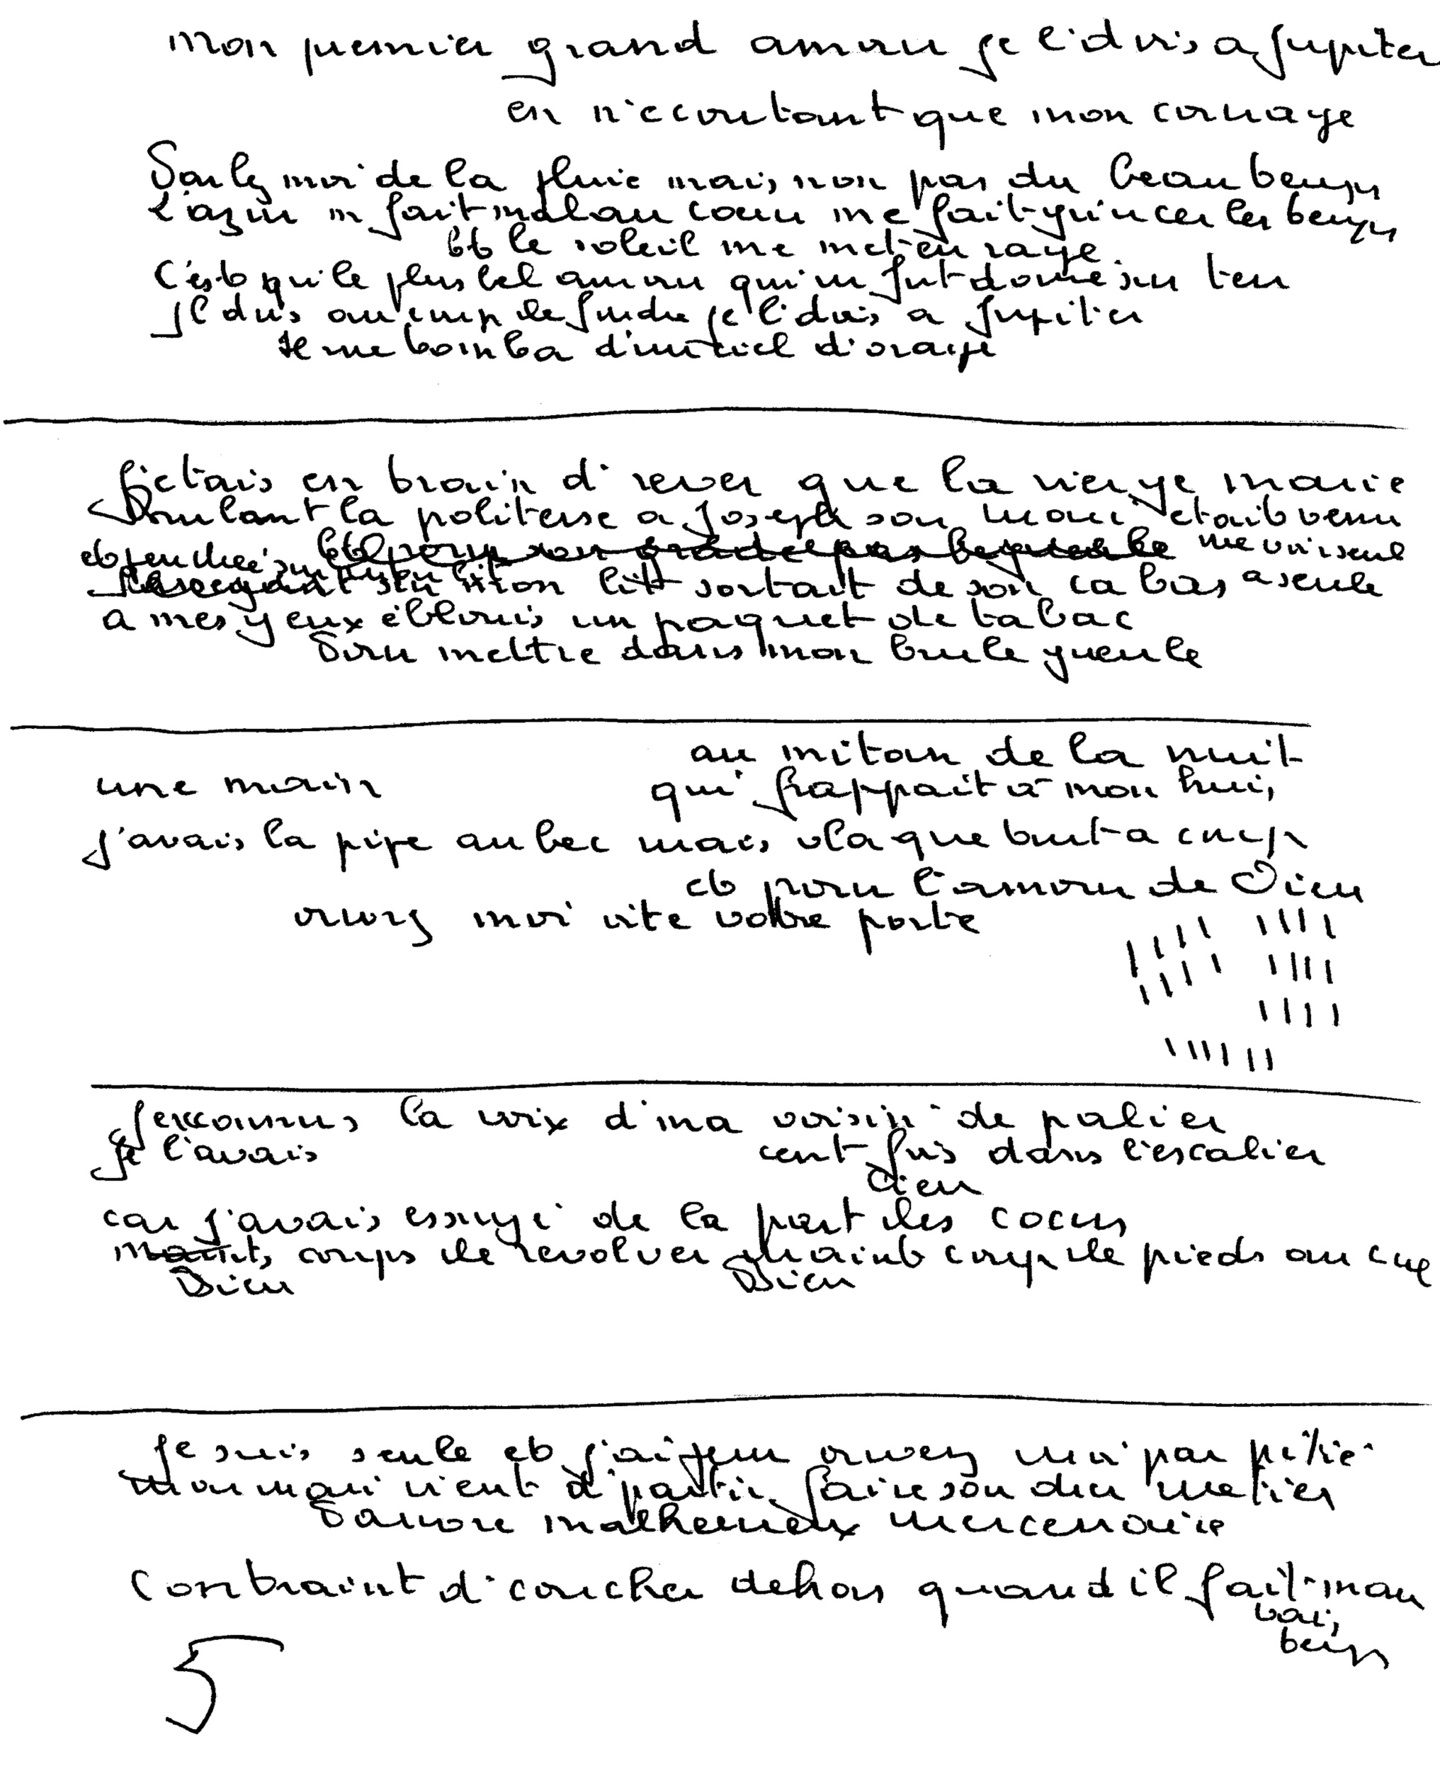 mon premier grand amour je l'dois a Jupiter
en n'ecoutant que mon courage
Parlez moi de la pluie mais non pas du beau temps
L'azur m fait mal au coeur me fait grincer les temps
Et le soleil me met en rage
C'est que le plus bel amour qui m fut donné sur ter
Jl dois au coup de foudre je l'dois a Jupiter
Il me tomba d'un ciel d'orage
J'etais en train d'rever que la vierge marie
Poulant la politesse a Joseph son mari etait venu
et penchée sur me voir seul
mon lit sortait de son cabas a seule
a mes yeux éblouis un paquet de tabac
Pour mettre dans mon brule gueule
au mitan de la nuit
une main qui frappait à mon huis
j'avais la pipe au bec mais vla que tout a coup
et pour l'amour de Dieu
ouvrez moi vite votre porte
Je reconnus la voix d'ma voisin' de palier
je l'avais cent fois dans l'escalier
Dieu
car j'avais essuyé de la part des cocus
Maints coups de revolver maint coup de pieds au cul
Dieu Dieu
Je suis seule et j'ai peur ouvrez moi par pitié
Mon mari vient d'partir faire son dur metier
Pauvre malheureux mercenaire
Contraint d'coucher dehors quand il fait mau
vais
temps
5